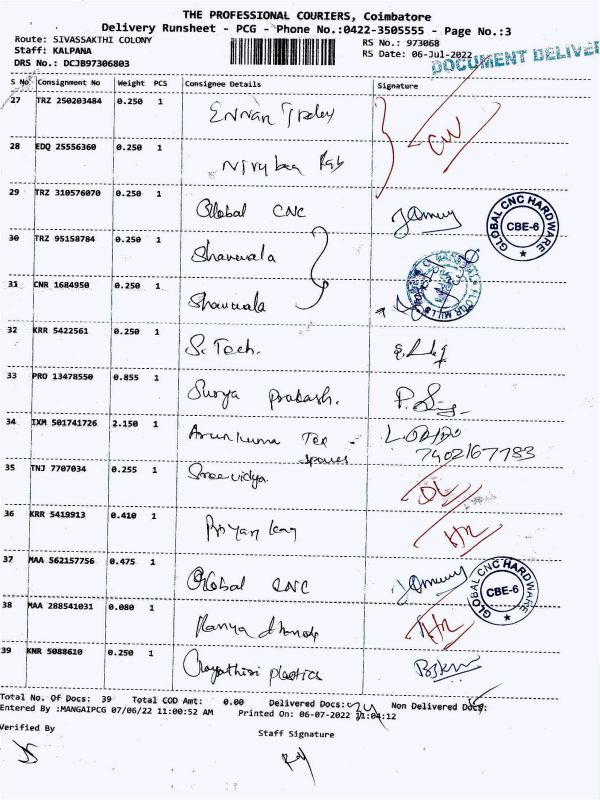 THE PROFESSIONAL COURIERS, Coimbatore
Delivery Runsheet - PCG - Phone No.:0422-3505555 - Page No.:3
Route: SIVASSAKTHI COLONY RS No.: 973068
Staff: KALPANA RS Date: 06-Jul-2022
DRS No.: DCJB97306803
DOCUMENT DELIVER
S No Consignment No Weight PCS Consignee Details Signature
27 TRZ 250203484 0.250 1
CN
28 EDQ 25556360 0.250 1
29 TRZ 310576070 0.250 1 Global CNC
GLOBAL CNC HARDWARE CBE-6
30 TRZ 95158784 0.250 1 Shanwala
31 CNR 1684950 0.250 1 Shanwala
FLOUR MILLS
32 KRR 5422561 0.250 1 S. Tech.
33 PRO 13478550 0.855 1 Surya prakash.
34 IXM 501741726 2.150 1 Arunkuma Tex
spares 7402167783
35 TNJ 7707034 0.255 1 Sreevidya DL
36 KRR 5419913 0.410 1 HR
37 MAA 562157756 0.475 1 Global CNC
GLOBAL CNC HARDWARE CBE-6
38 MAA 288541031 0.080 1 HR
39 KNR 5088610 0.250 1 Gayathiri plastics
Total No. Of Docs: 39 Total COD Amt: 0.00 Delivered Docs: 34 Non Delivered Docs: 5
Entered By :MANGAIPCG 07/06/22 11:00:52 AM Printed On: 06-07-2022 11:04:12
Verified By Staff Signature